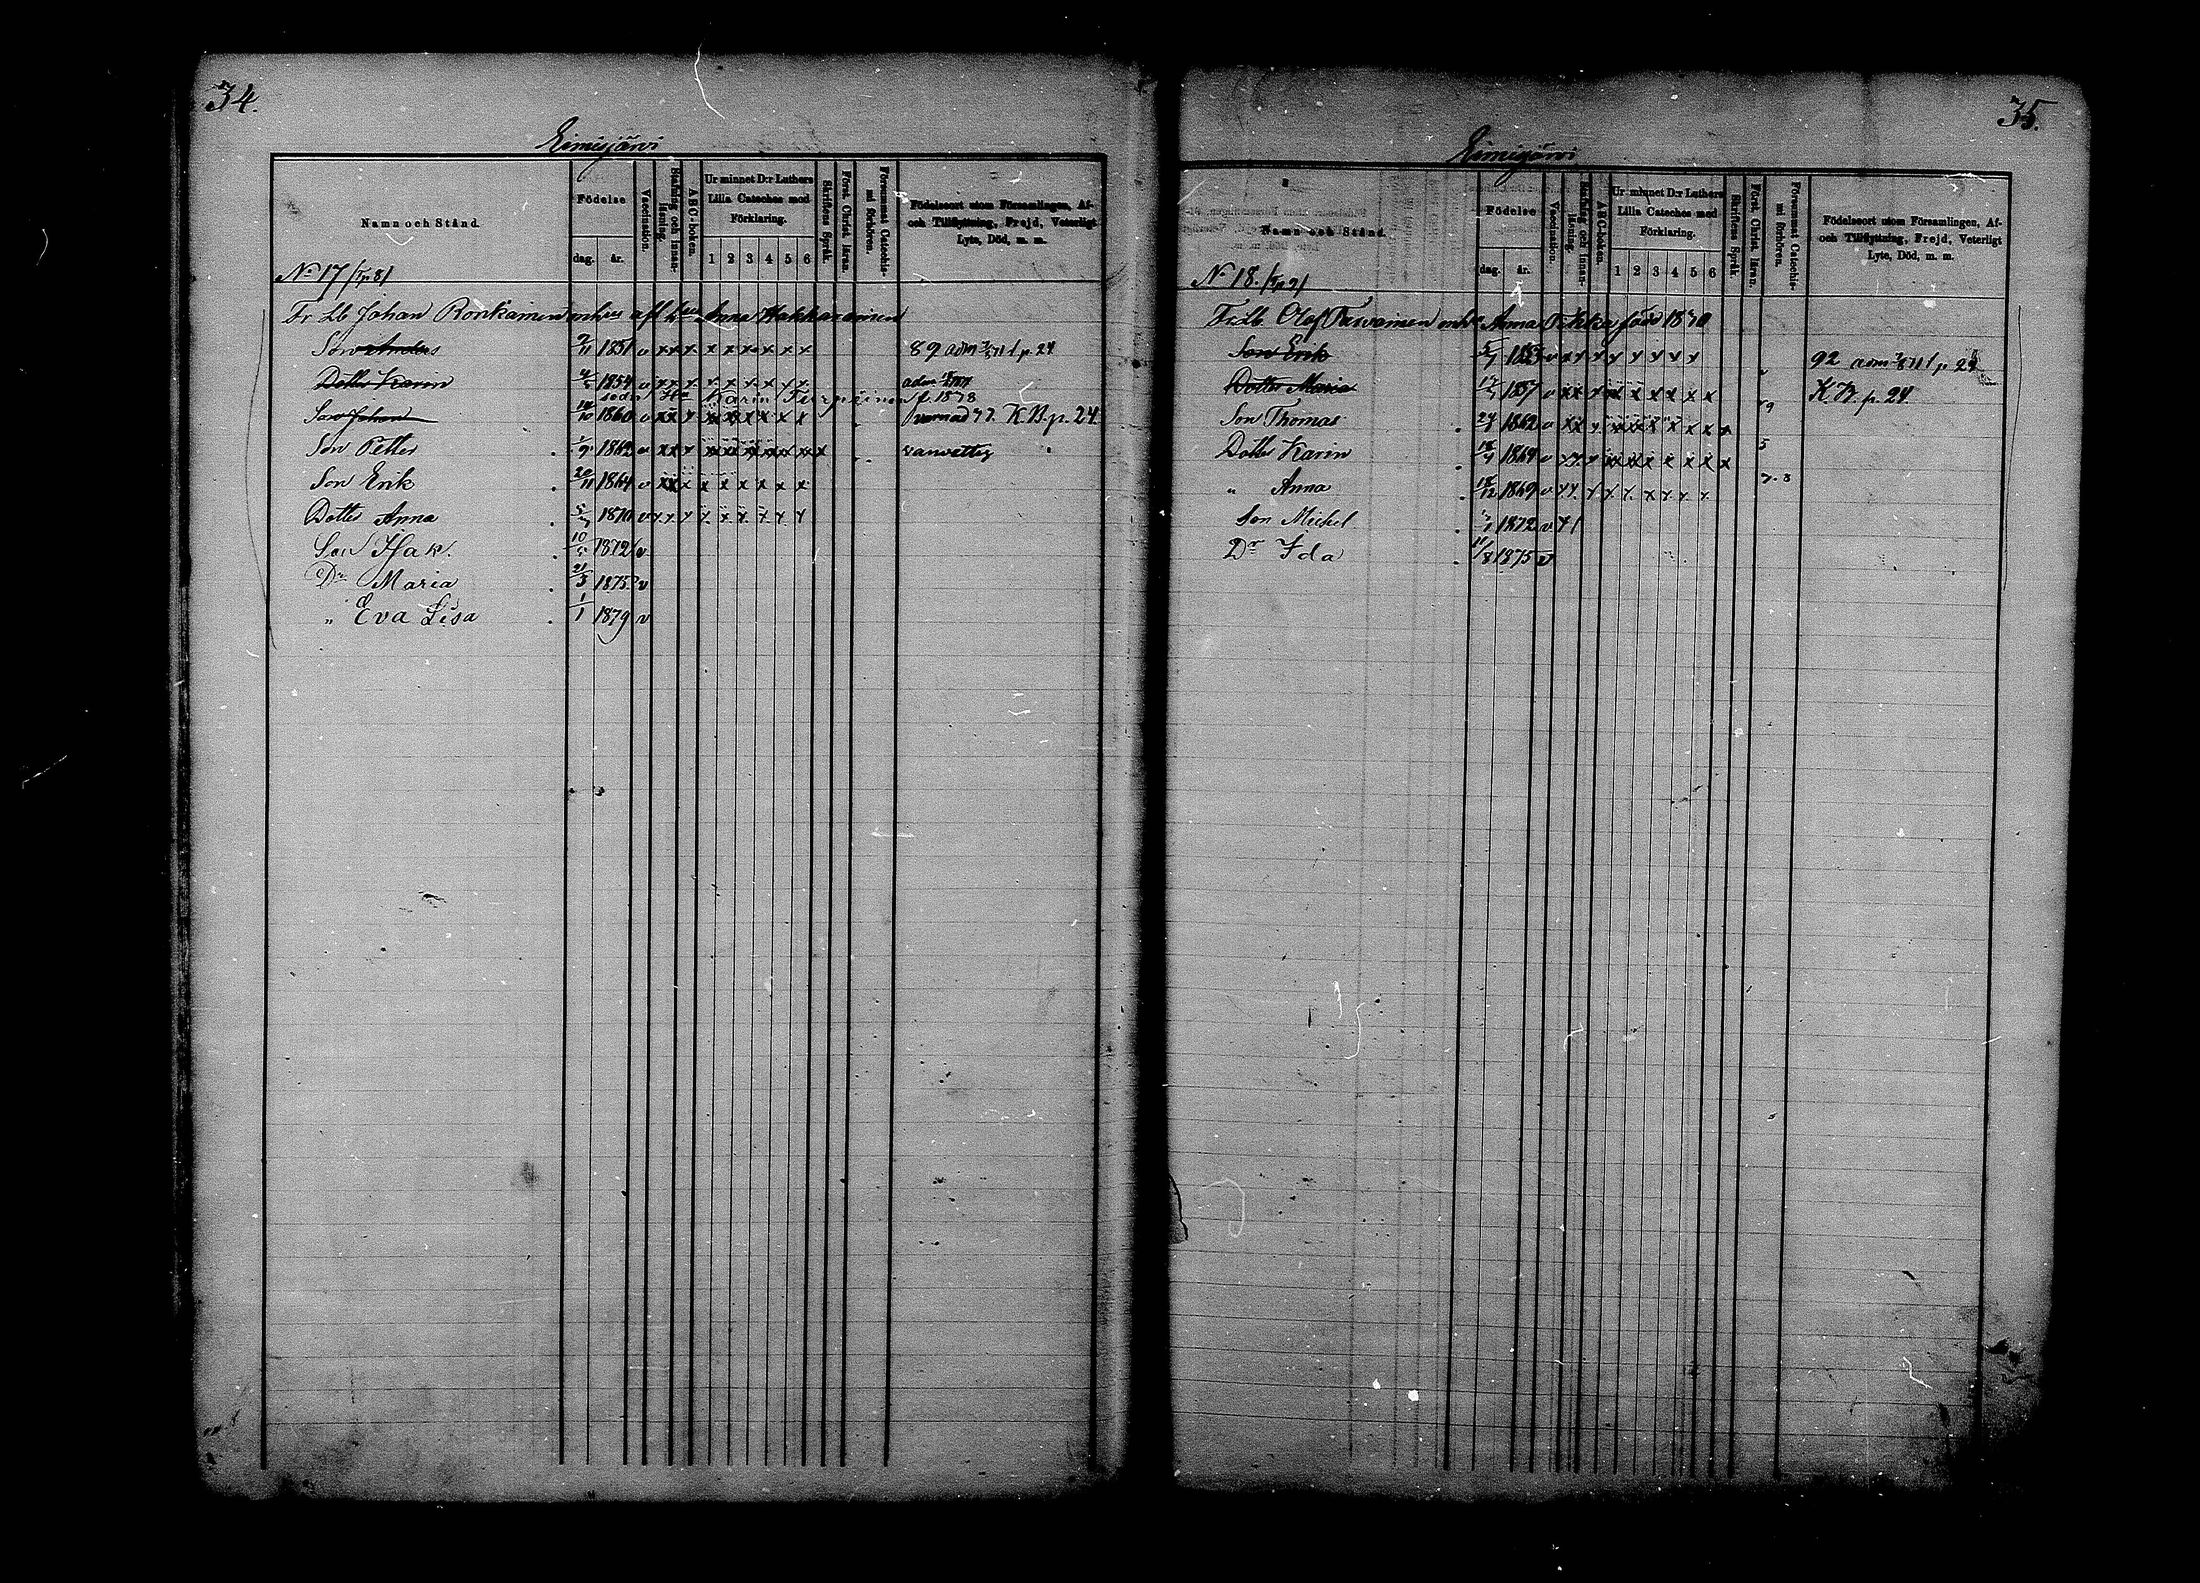 34.
Eimisjärvi
Namn och Stånd.
Födelse
dag. år.
Vaccination.
Stafning och innan-läsning.
ABC-boken.
Ur minnet D:r Luthers Lilla Cateches med Förklaring.
1 2 3 4 5 6
Skriftens Språk
Först. Christ. läran.
Försummat Catechis-mi förhören.
Födelseort utom Församlingen, Af- och Tillflyttning, Frejd, Veterligt Lyte, Död, m. m.
No 17 /Tp 8/
Fr Lb Johan Ronkainen Anna Hakkarainen
Son Anders 2/11 1851 v x x x x x x x x x 89 p 24
Dotter Karin 1854 v x x x x x x x x x
sedan Karin Turpeinen f. 1878
Son Johan 18/10 1860 v xx x x x x x x x K.B. p. 24
Son Petter 1/9 1862 v xx x x x x x x x x vanvettig
Son Erik 20/11 1864 v xx x x x x x x x
Dotter Anna 1870 v x x x x x x x x x
Son Isak. 10 1872 v
Dr Maria 21/3 1875 v
" Eva Lisa 1/1 1879 v
35.
Eimisjärvi
Namn och Stånd.
Födelse
dag. år.
Vaccination.
Stafning och innan-läsning.
ABC-boken.
Ur minnet D:r Luthers Lilla Cateches med Förklaring.
1 2 3 4 5 6
Skriftens Språk
Först. Christ. läran.
Försummat Catechis-mi förhören.
Födelseort utom Församlingen, Af- och Tillflyttning, Frejd, Veterligt Lyte, Död, m. m.
No 18. /Tp 9/
Fr Lb Olof Anna 1870
Son Erik v x x x x x x x x x 92
Dotter Maria 1857 v xx x x x x x x x K.B. p. 24
Son Thomas 1862 v xx x x x x x x x x
Dotter Karin 1864 v x x x x x x x x x x
" Anna 18/12 1869 v x x x x x x x x x
Son Michel 1872 v
Dr Ida 11/8 1875 v